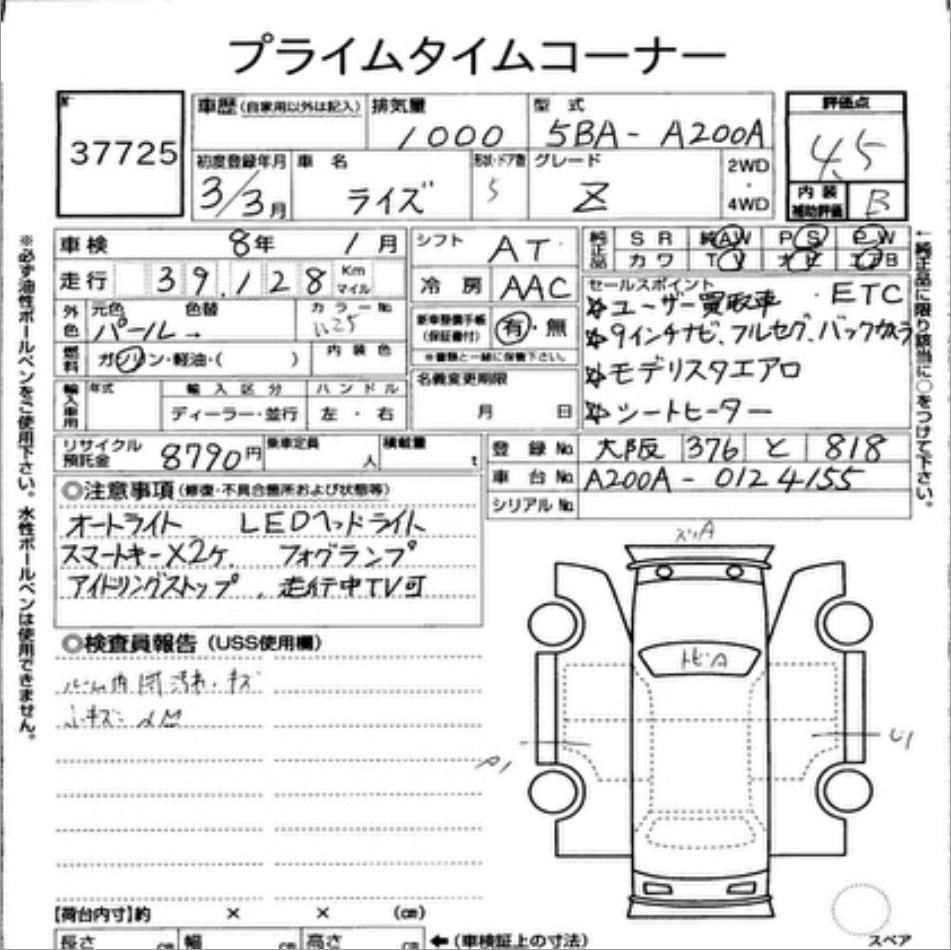 プライムタイムコーナー
37725
車歴(自家用以外は記入)
排気量
1000
型式
5BA- A200A
評価点
4.5
初度登録年月
3/3月
車名
ライズ
形状・ドア数
5
グレード
Z
2WD
・
4WD
内装
補助評価
B
車検 8年 1月
走行 39,128 Km
マイル
外色
元色
色替
パール→
カラーNo
燃料
ガソリン・軽油・( )
内装色
輸入車用
年式
輸入区分
ディーラー・並行
ハンドル
左・右
シフト AT
冷房 AAC
新車整備手帳
(保証書付)
有・無
※書類と一緒に保管下さい。
名義変更期限
月 日
純正品
SR 純AW PS PW
カワ TV
セールスポイント
☆ユーザー買取車 ・ETC
☆9インチナビ、フルセグ、バックカメラ
☆モデリスタエアロ
☆シートヒーター
リサイクル
預託金
8790円
乗車定員
人
積載量
t
登録No 大阪 376 と 818
車台No A200A-0124155
シリアルNo
◎注意事項(修復・不具合箇所および状態等)
オートライト LEDヘッドライト
スマートキー×2ケ. フォグランプ
アイドリングストップ、走行中TV可
◎検査員報告(USS使用欄)
小キズ
トビA
U1
A1
【荷台内寸】約 × × (cm)
長さ cm 幅 cm 高さ cm
←(車検証上の寸法)
スペア
※必ず油性ボールペンをご使用下さい。水性ボールペンは使用できません。
←純正品に限り該当に○をつけて下さい。